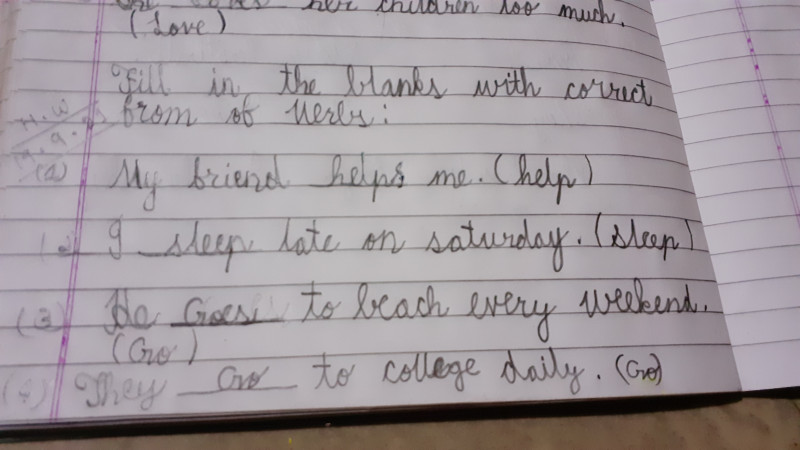 her children too much.
(Love)
Fill in the blanks with correct
H.W from of verbs:
(1) My friend helps me. (help)
I sleep late on saturday. (sleep)
(3) He Goes to beach every weekend.
(Go)
(4) They Go to college daily. (Go)